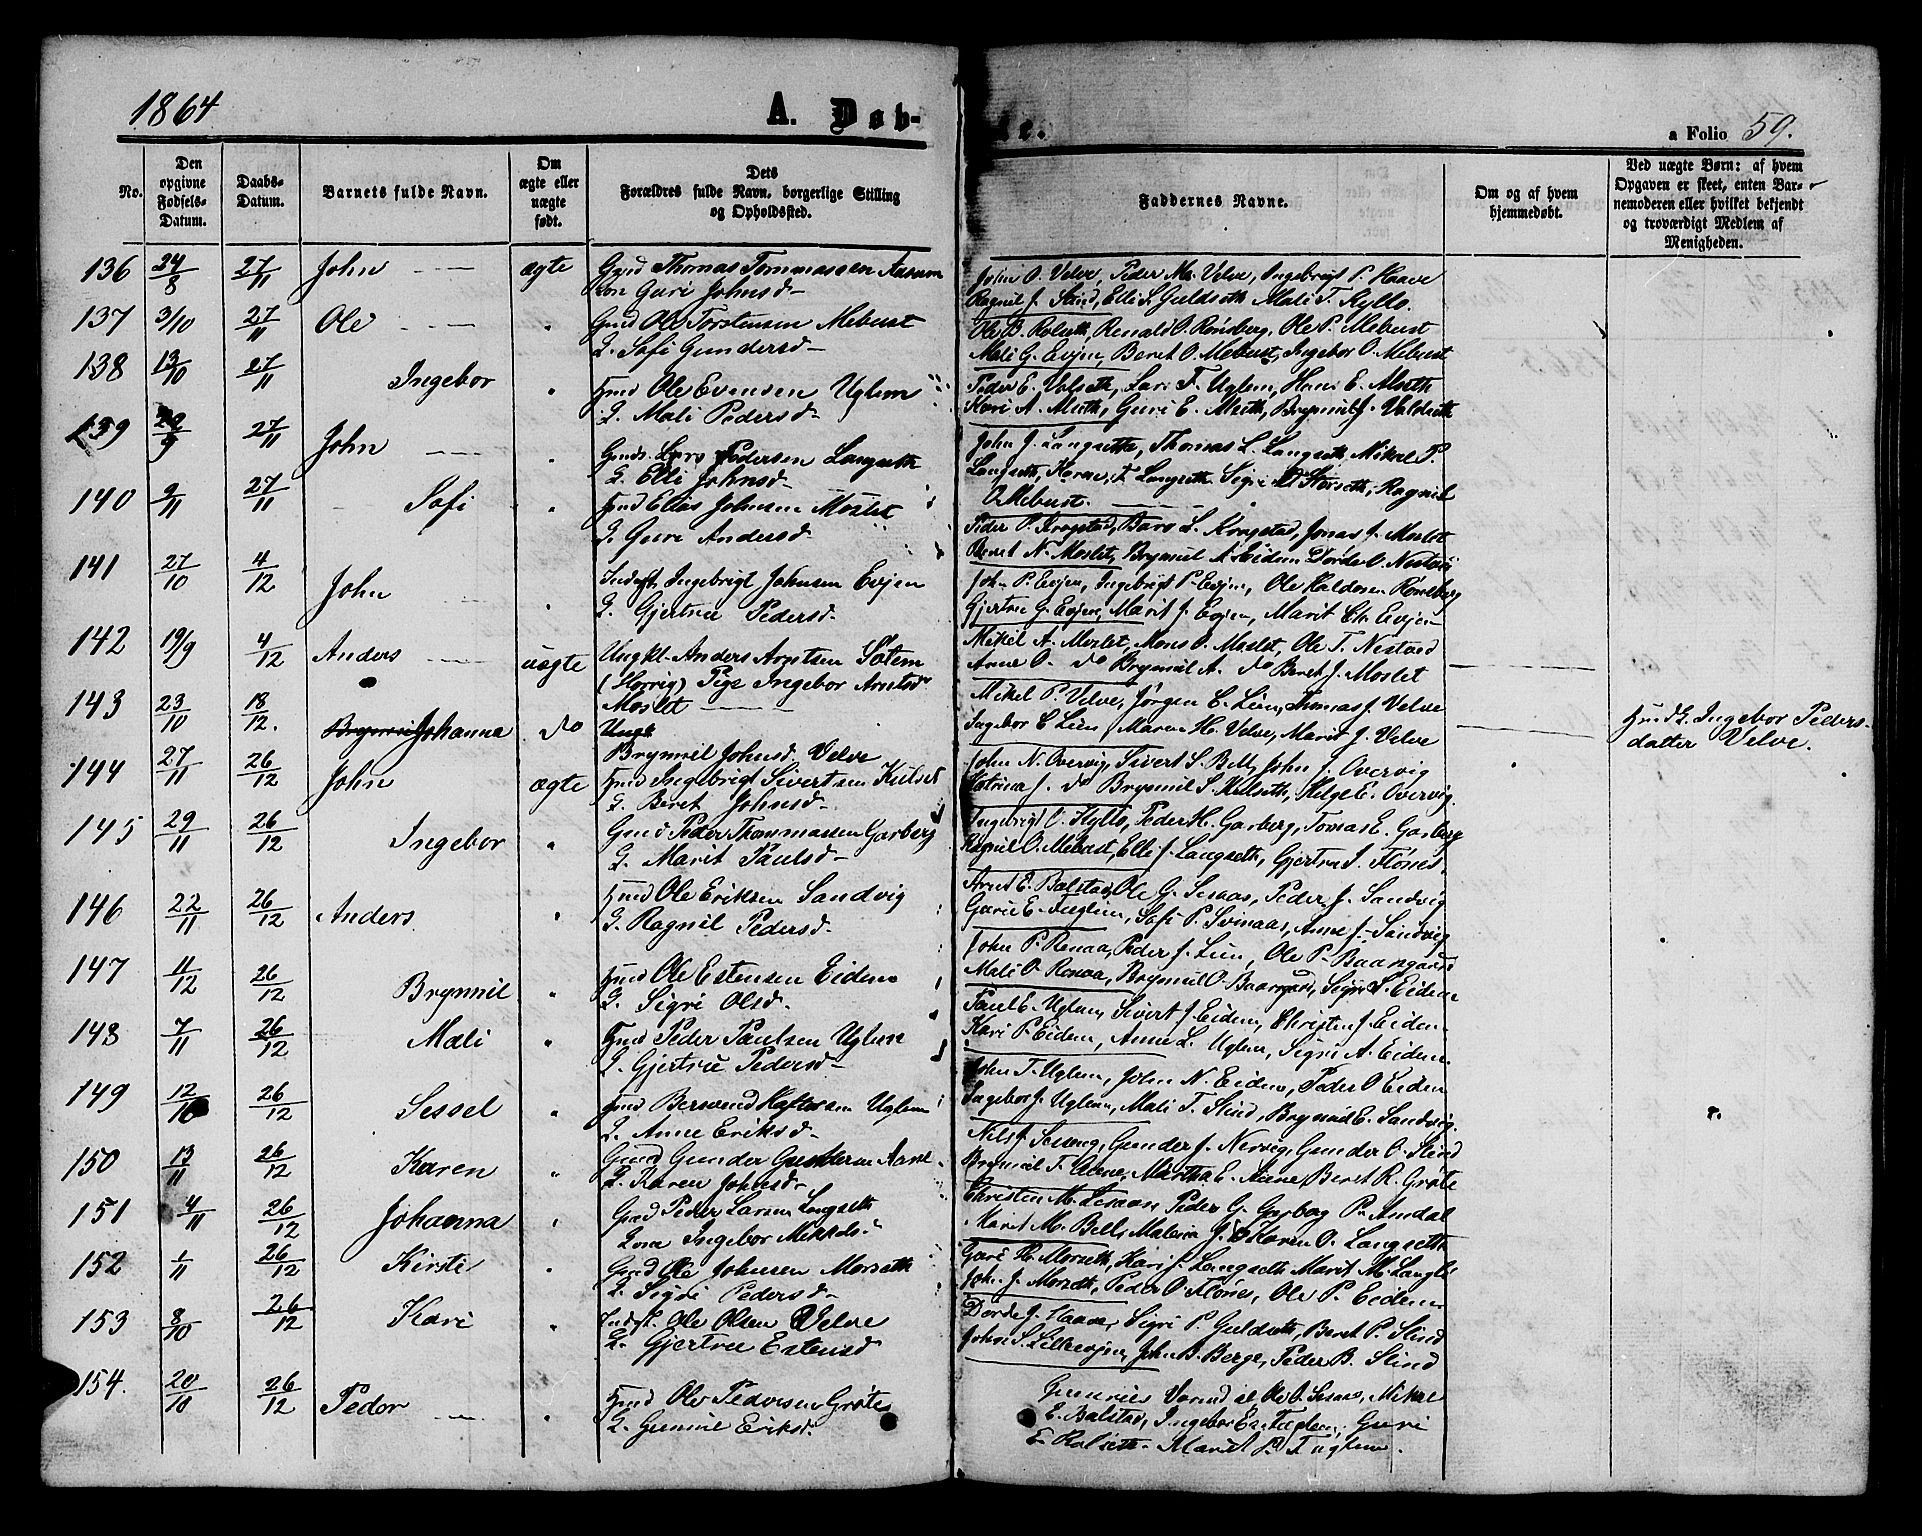 1864 A. Døb- te. a Folio 59.
No.
Den opgivne Fødsels-Datum.
Daabs-Datum.
Barnets fulde Navn.
Om ægte eller uægte født.
Dets Forældres fulde Navn, borgerlige Stilling og Opholdssted.
Faddernes Navne.
Om og af hvem hjemmedøbt.
Ved uægte Børn: af hvem Opgaven er skeet, enten Barnemoderen eller hvilket bekjendt og troværdigt Medlem af Menigheden.
136 24/8 27/11 John ægte Gmd Thomas Tommassen Aasum
Kon Guri Johnsd
John O. Velve, Peder M. Velve, Ingebrigt P. Haave
Ragnil J. Slind, Elli S. Guldseth Mali T. Kyllo.
137 3/10 27/11 Ole " Gmd Ole Torstensen Mebust
K. Sofi Gundersd
Ole B. Rolseth, Renald O. Rønsberg, Ole P. Mebust
Mali G. Evjen, Beret O. Mebust, Ingebor O. Mebust
138 13/10 27/11 Ingebor " Hmd Ole Evensen Uglem
K. Mali Pedersd
Peder E. Valseth, Lari T. Uglem, Hans E. Morseth
Kari A. Muth, Guri E. Muth, Brynnil J. Valdseth
139 /9 27/11 John " Gmds. Lars Pedersen Langseth
K. Elli Johnsd
John J. Langseth, Thomas L. Langseth Mikal P.
Langseth, Karen T Langseth Sigri Storseth, Ragnil
O Mebust.
140 9/11 27/11 Sofi " Hmd Elias Johnsen Moslet
K. Guri Andersd
Peder P. Krogstad, Baro L. Krogstad, Jonas J. Moslet
Beret N. Moslet, Brynnil A. Eidem Dorde O. Nestvig
141 27/10 4/12 John " Indst. Ingebrigt Johnsen Evjen
K. Gjertrue Pedersd.
John P. Evjen, Ingebrigt P. Evjen, Ole Haldosen Rønsberg
Gjertru G. Evjen, Marit J. Evjen, Marit Ch. Evjen
142 19/9 4/12 Anders uægte Ungkl. Anders Arntsen Sotem
(Horrig) Pige Ingebor Arntsd
Moslet
Mikel A. Moslet, Mons O. Moslet, Ole T. Nestaad
Anne O. do Brynnil A. do Beret J. Moslet
143 23/10 18/12. Johanna do Ungk
Brynnil Johnsd. Velve
Mikel P. Velve, Jørgen E. Lien, Thomas J. Velve
Ingebor E Lien, Maren H. Velve, Marit J. Velve
Hmd K. Ingebor Peders-
datter Velve.
144 27/11 26/12 John ægte Hmd Ingebrigt Sivertsen Kulset
K. Beret Johnsd.
John N. Overvig, Sivert S. Bell, John J. Overvig
Katrina J. do Brynnil S. Kulseth, Helge E. Overvig.
145 29/11 26/12 Ingebor " Gmd Peder Thommassen Garberg
K. Marit Paulsd
Ingebrigt O. Kyllo, Peder H. Garberg, Tomas E. Garberg
Ragnil O. Mebust, Elli J. Langseth, Gjertru I. Flønes.
146 22/11 26/12 Anders. " Hmd Ole Eriksen Sandvig
K. Ragnil Pedersd.
Arnt E. Balstad, Ole G. Sesaas, Peder J. Sandvig
Guru E. Fuglem, Sofi P. Svinaas, Anne J. Sandvig
147 11/12 26/12 Brynnil " Hmd Ole Estensen Eidem
K. Sigri Olsd.
John P. Renaa, Peder J. Lien, Ole P. Baangaard
Mali O. Renaa, Brynnil O. Baangaard, Sigri S. Eidem
148 7/11 26/12 Mali " Hmd Peder Paulsen Uglem
K. Gjertrue Pedersd
Paul E. Uglem, Sivert J. Eidem, Christen J. Eiden
Kari P. Eidem, Anne L. Uglem, Sigri A. Eidem.
149 12/10 26/12 Sessel " Hmd Bersvend Haftorsen Uglem
K. Anne Eriksd
John T. Uglem, John N. Eidem, Peder O Eidem
Ingebor J. Uglem, Mali T. Slind, Brynnil E. Sandvig.
150 13/11 26/12 Karen " Gmd Gunder Gundersen Aune
K. Karen Johnsd
Nils J. Sesseng, Gunder J. Nervig, Gunder O. Slind
Brynnil T. Aune, Martha E. Aune, Beret R. Grøte
151 4/11 26/12 Johanna " Gmd Peder Larsen Langseth
Kona Ingebor Mikkels.
Christen M. Sesaas, Peder G. Garberg P. Amdal
Marit M. Bell, Malena J. do Karen O. Langseth
152 1/11 26/12 Kirsti " Gmd Ole Johnsen Morseth
K. Sigri Pedersd
Guri H. Morseth, Kari J. Langseth Marit M. Langli
John J. Morseth, Peder O Flønes, Ole P. Eidem
153 8/10 26/12 Kari " Indst. Ole Olsen Velve
K. Gjertru Estensd
Dorde J. Haave, Sigri P. Guldseth, Beret P. Slind
John S. Lilleevjen, John B. Berge, Peder B. Slind
154. 20/10 26/12 Peder " Hmd Ole Pedersen Grøte
K. Gunnil Eriksd.
Gunnius Varmdal, Ole O. Sesaas, Mikal
E. Balstad, Ingebor E. Fuglem, Guri
E. Rolseth. Marit P. Fuglem.